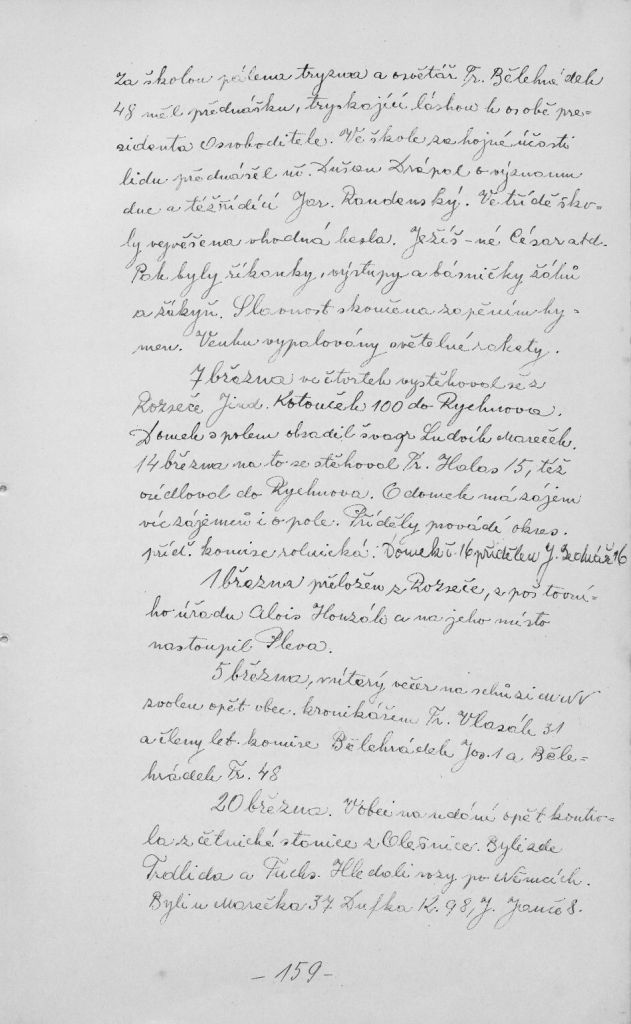 Za školou pálena tryzna a osvětář Fr. Bělehrádek
48 měl přednášku, tryskající láskou k osobě pre-
sidenta Osvoboditele. Ve škole za hojné účasti
lidu přednášel uč. Dušan Drápal o významu
dne a též řídící Jar. Roudenský. Ve třídě ško-
ly vyvěšena vhodná hesla. Ježíš-né César atd.
Pak byly říkanky, výstupy a básničky žáků
a žákyň. Slavnost skončena zapěním hy-
men. Venku vypalovány světelné rakety.
7 března ve čtvrtek vystěhoval se z
Rozseče Jind. Kotouček 100 do Rychnova.
Domek s polem obsadil švagr Ludvík Mareček.
14 března na to se stěhoval Fr. Halas 15, též
osídloval do Rychnova. O domek má zájem
víc zájemců i o pole. Příděly provádí okres.
příd. komise rolnická. Domek č. 16 přidělen J. 16
1 března přeložen z Rozseče, z poštovní-
ho úřadu Alois Honzák a na jeho místo
nastoupil Pleva.
5 března, v úterý večer na schůzi MNV
zvolen opět obec. kronikářem Fr. Vlasák 31
a členy let. komise Bělehrádek Jos. 1 a Běle-
hrádek Fr. 48
20 března. V obci na udání opět kontro-
la z četnické stanice z Olešnice. Byli zde
Trdlida a Fuchs. Hledali vozy po Němcích.
Byli u Marečka 37 Dufka K. 98, J. Janče 8.
- 159 -